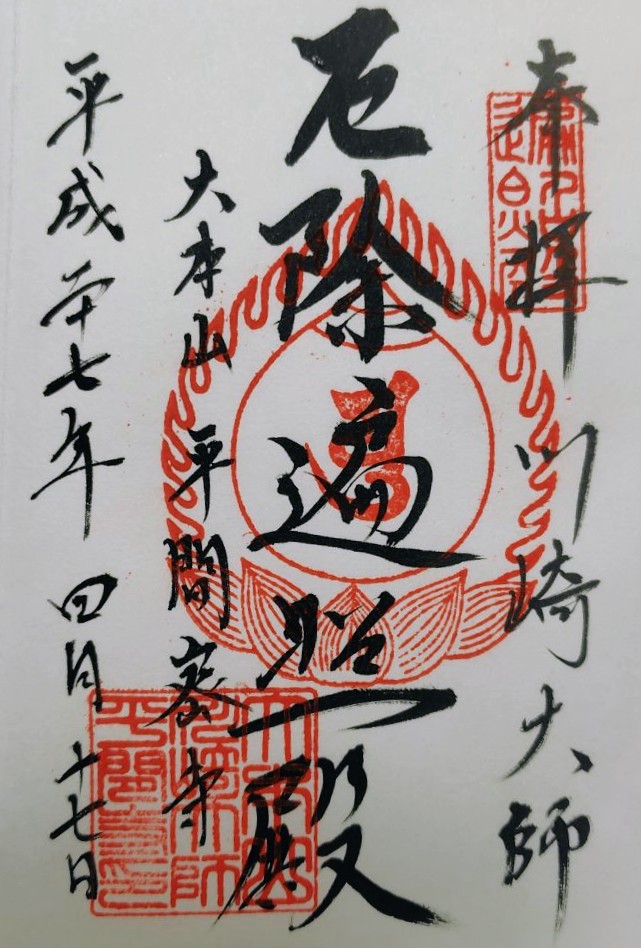 奉拝 川崎大師
厄除遍照殿
大本山 平間密寺
平成廿七年 四月 十七日